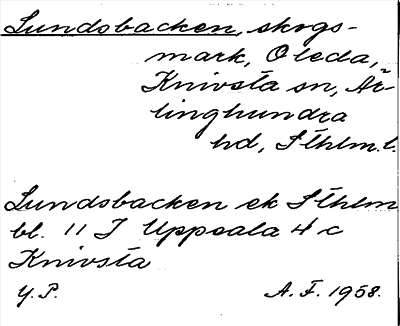 Lundsbacken, skogs-
mark, Oleda,
Knivsta sn, Är-
linghundra
hd, Sthlm.l.
Lundsbacken ek Sthlm
bl. 11 I Uppsala 4 c
Knivsta
Y.P. A.F. 1958.